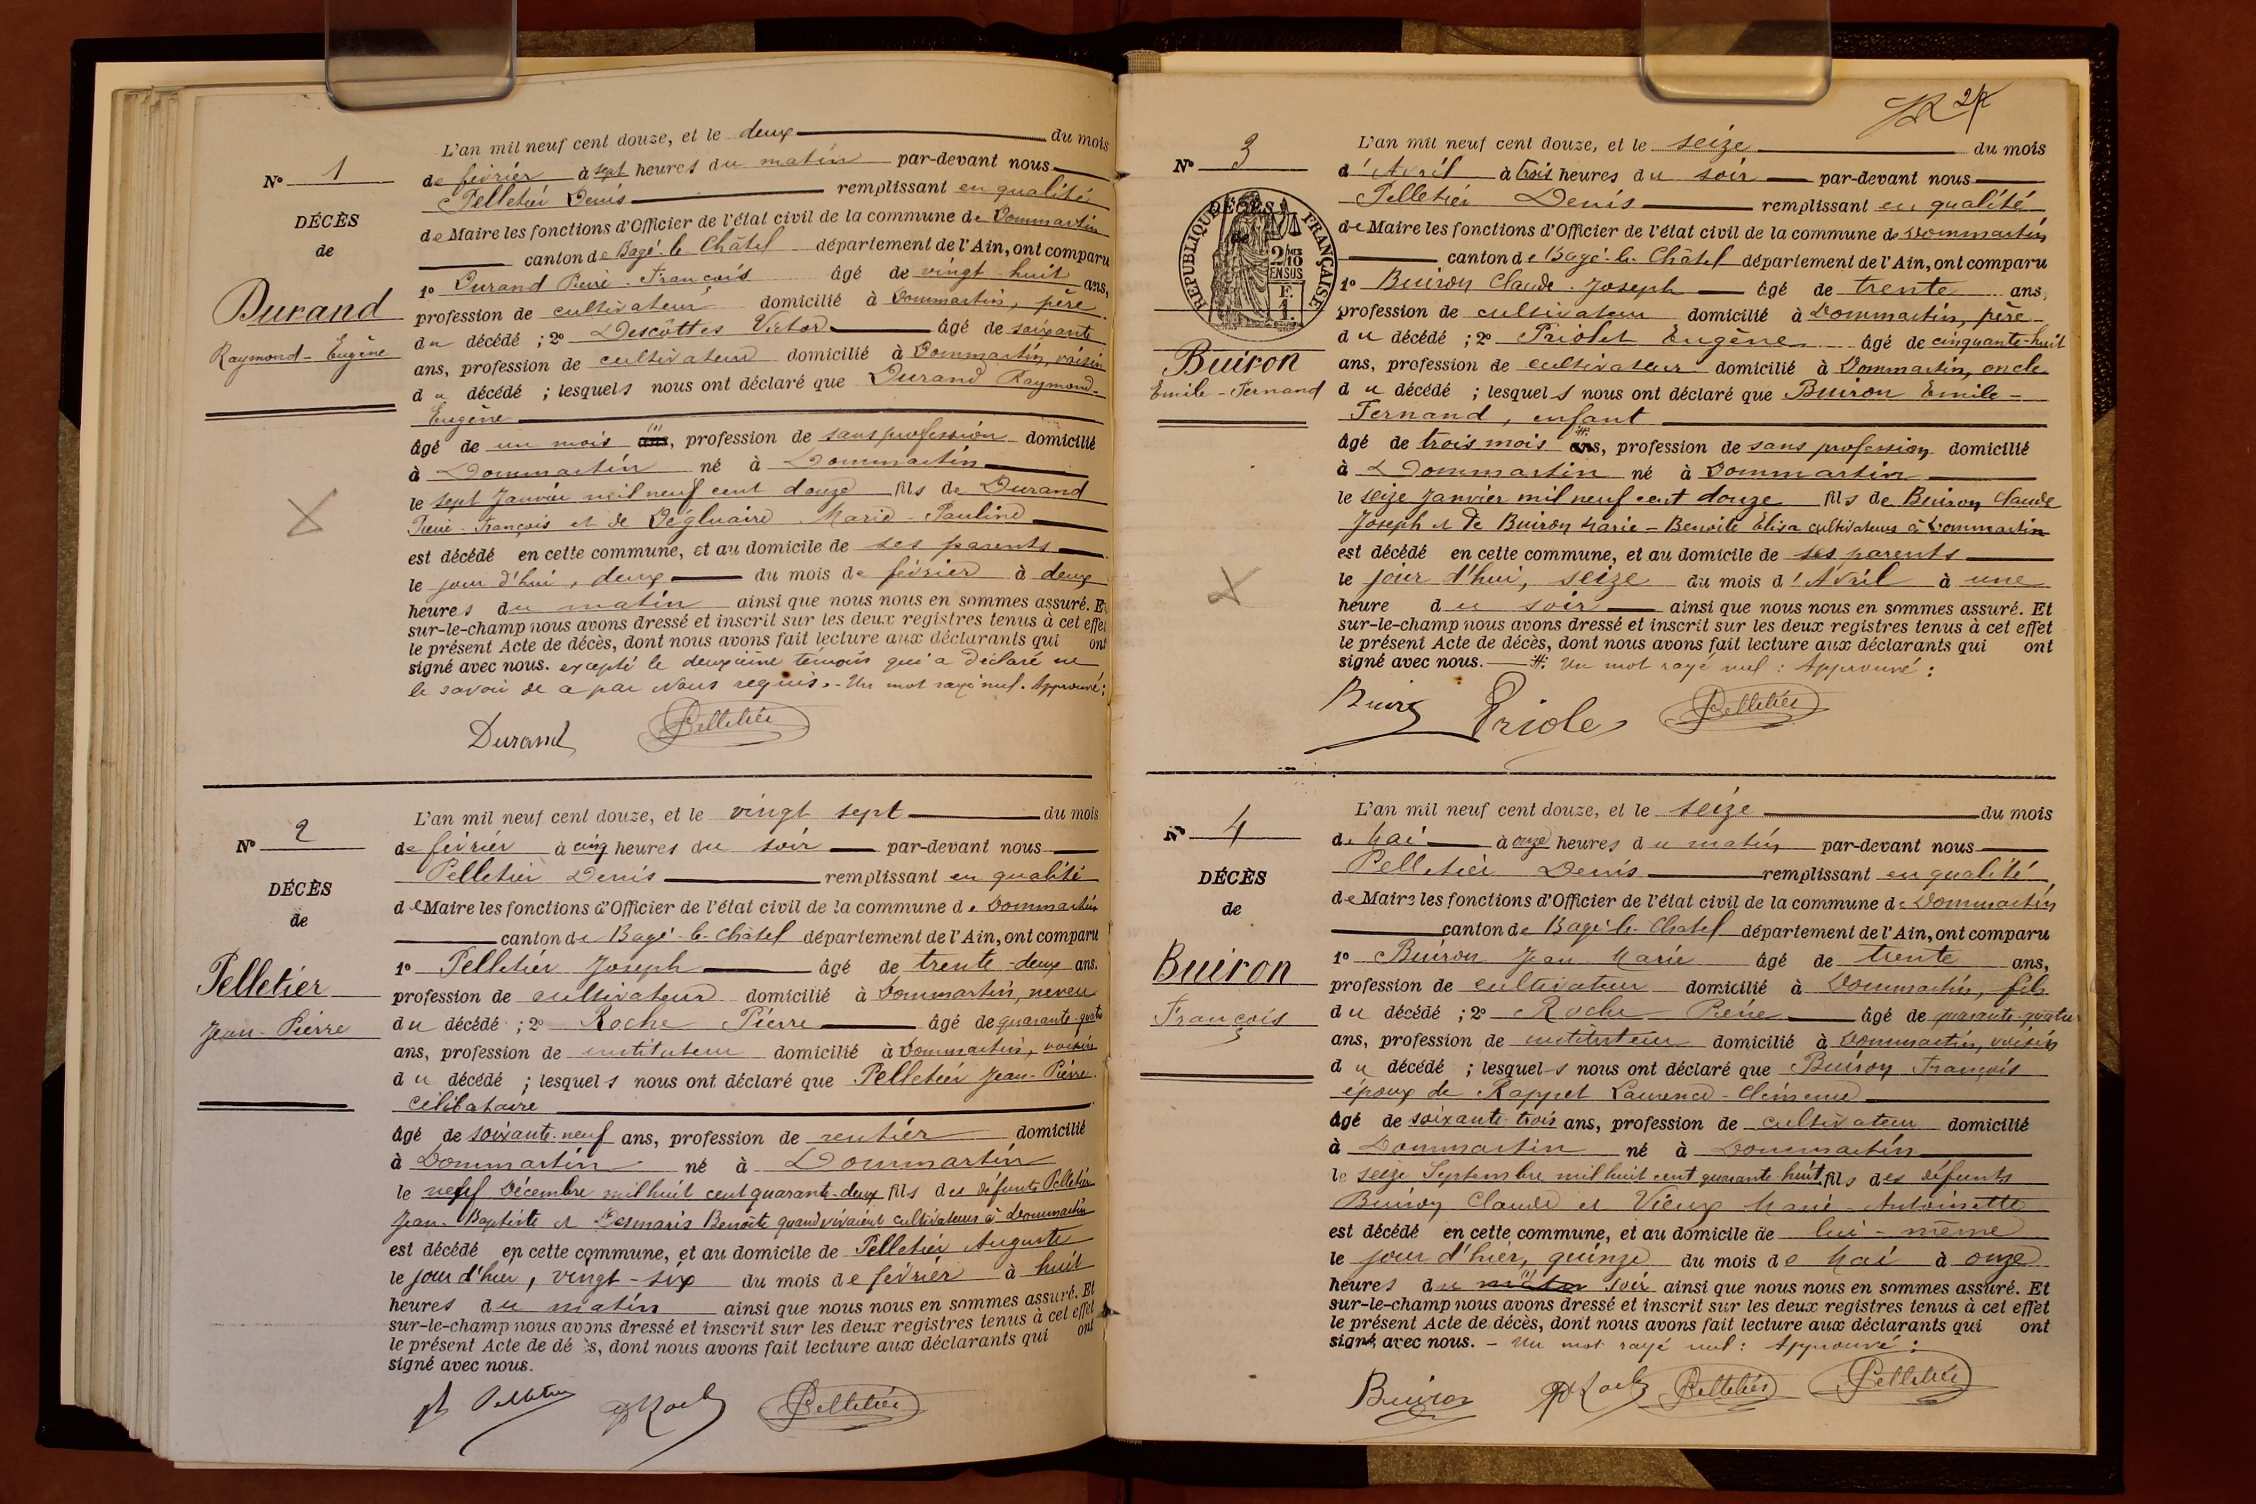 L'an mil neuf cent douze, et le deux du mois
de février à sept heures du matin par-devant nous
Pelletier Denis remplissant en qualité
de Maire les fonctions d'Officier de l'état civil de la commune de Dommartin
canton de Bagé-le-Châtel département de l'Ain, ont comparu
1° Durand Pierre-François âgé de vingt-huit ans,
profession de cultivateur domicilié à Dommartin, père
du décédé ; 2° Descottes Victor âgé de soixante
ans, profession de cultivateur domicilié à Dommartin, voisin
du décédé ; lesquels nous ont déclaré que Durand Raymond-
Eugène
âgé de un mois ans, profession de sans profession domicilié
à Dommartin né à Dommartin
le sept Janvier mil neuf cent douze fils de Durand
Pierre-François et de Marie-Pauline
est décédé en cette commune, et au domicile de ses parents
le jour d'hui, deux du mois de février à deux
heures du matin ainsi que nous nous en sommes assuré. Et
sur-le-champ nous avons dressé et inscrit sur les deux registres tenus à cet effet
le présent Acte de décès, dont nous avons fait lecture aux déclarants qui ont
signé avec nous. excepté le deuxième témoin qui a déclaré ne
le savoir de a par Nous requis. - Un mot rayé nul. Approuvé :
Durand Pelletier
N° 1
DÉCÈS
de
Durand
Raymond-Eugène
L'an mil neuf cent douze, et le vingt sept du mois
de février à cinq heures du soir par-devant nous
Pelletier Denis remplissant en qualité
de Maire les fonctions d'Officier de l'état civil de la commune de Dommartin
canton de Bagé-le-Châtel département de l'Ain, ont comparu
1° Pelletier Joseph âgé de trente-deux ans.
profession de cultivateur domicilié à Dommartin, neveu
du décédé ; 2° Roche Pierre âgé de quarante-quatre
ans, profession de instituteur domicilié à Dommartin, voisin
du décédé ; lesquels nous ont déclaré que Pelletier Jean-Pierre
célibataire
âgé de soixante-neuf ans, profession de rentier domicilié
à Dommartin né à Dommartin
le neuf Décembre mil huit cent quarante-deux fils des défunts Pelletier
Jean-Baptiste et Desmaris Benoîte quand vivaient cultivateurs à Dommartin
est décédé en cette commune, et au domicile de Pelletier Auguste
le jour d'hier, vingt-six du mois de février à huit
heures du matin ainsi que nous nous en sommes assuré. Et
sur-le-champ nous avons dressé et inscrit sur les deux registres tenus à cet effet
le présent Acte de décès, dont nous avons fait lecture aux déclarants qui ont
signé avec nous.
Pelletier Roche Pelletier
N° 2
DÉCÈS
de
Pelletier
Jean-Pierre
2
L'an mil neuf cent douze, et le seize du mois
d'Avril à trois heures du soir par-devant nous
Pelletier Denis remplissant en qualité
de Maire les fonctions d'Officier de l'état civil de la commune de Dommartin
canton de Bagé-le-Châtel département de l'Ain, ont comparu
1° Buiron Claude-Joseph âgé de trente ans,
profession de cultivateur domicilié à Dommartin, père
du décédé ; 2° Priolet Eugène âgé de cinquante-huit
ans, profession de cultivateur domicilié à Dommartin, oncle
du décédé ; lesquels nous ont déclaré que Buiron Emile-
Fernand, enfant
âgé de trois mois ans, profession de sans profession domicilié
à Dommartin né à Dommartin
le seize Janvier mil neuf cent douze fils de Buiron Claude
Joseph et de Buiron Marie-Benoîte Elisa cultivateurs à Dommartin
est décédé en cette commune, et au domicile de ses parents
le jour d'hui, seize du mois d'Avril à une
heure du soir ainsi que nous nous en sommes assuré. Et
sur-le-champ nous avons dressé et inscrit sur les deux registres tenus à cet effet
le présent Acte de décès, dont nous avons fait lecture aux déclarants qui ont
signé avec nous. # Un mot rayé nul : Approuvé :
Buiron Priolet Pelletier
N° 3
DÉCÈS
de
RÉPUBLIQUE FRANÇAISE
2/10 EN SUS
Buiron
Emile-Fernand
L'an mil neuf cent douze, et le seize du mois
de Mai à onze heures du matin par-devant nous
Pelletier Denis remplissant en qualité
de Maire les fonctions d'Officier de l'état civil de la commune de Dommartin
canton de Bagé-le-Châtel département de l'Ain, ont comparu
1° Buiron Jean Marie âgé de trente ans,
profession de cultivateur domicilié à Dommartin, fils
du décédé ; 2° Roche Pierre âgé de quarante-quatre
ans, profession de instituteur domicilié à Dommartin, voisin
du décédé ; lesquels nous ont déclaré que Buiron François
époux de Rappet Laurence-Clémence
âgé de soixante-trois ans, profession de cultivateur domicilié
à Dommartin né à Dommartin
le seize Septembre mil huit cent quarante huit fils des défunts
Buiron Claude et Vieux Marie-Antoinette
est décédé en cette commune, et au domicile de lui-même
le jour d'hier, quinze du mois de Mai à onze
heures du matin soir ainsi que nous nous en sommes assuré. Et
sur-le-champ nous avons dressé et inscrit sur les deux registres tenus à cet effet
le présent Acte de décès, dont nous avons fait lecture aux déclarants qui ont
signé avec nous. - Un mot rayé nul : Approuvé :
Buiron Roche Pelletier Pelletier
N° 4
DÉCÈS
de
Buiron
François